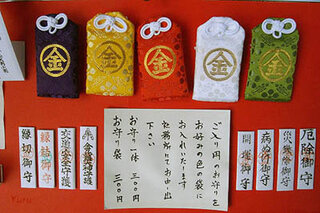 金
金
金
金
金
ご入り用のお守りを
お好みの色の袋に
お入れいたします
社務所にてお申し出
下さい
お守り一体 三〇〇円
お守り袋 三〇〇円
厄除御守
災難除御守
病気除御守
開運御守
金銭御守護
交通安全守護
縁結御守
縁切御守
Yuru